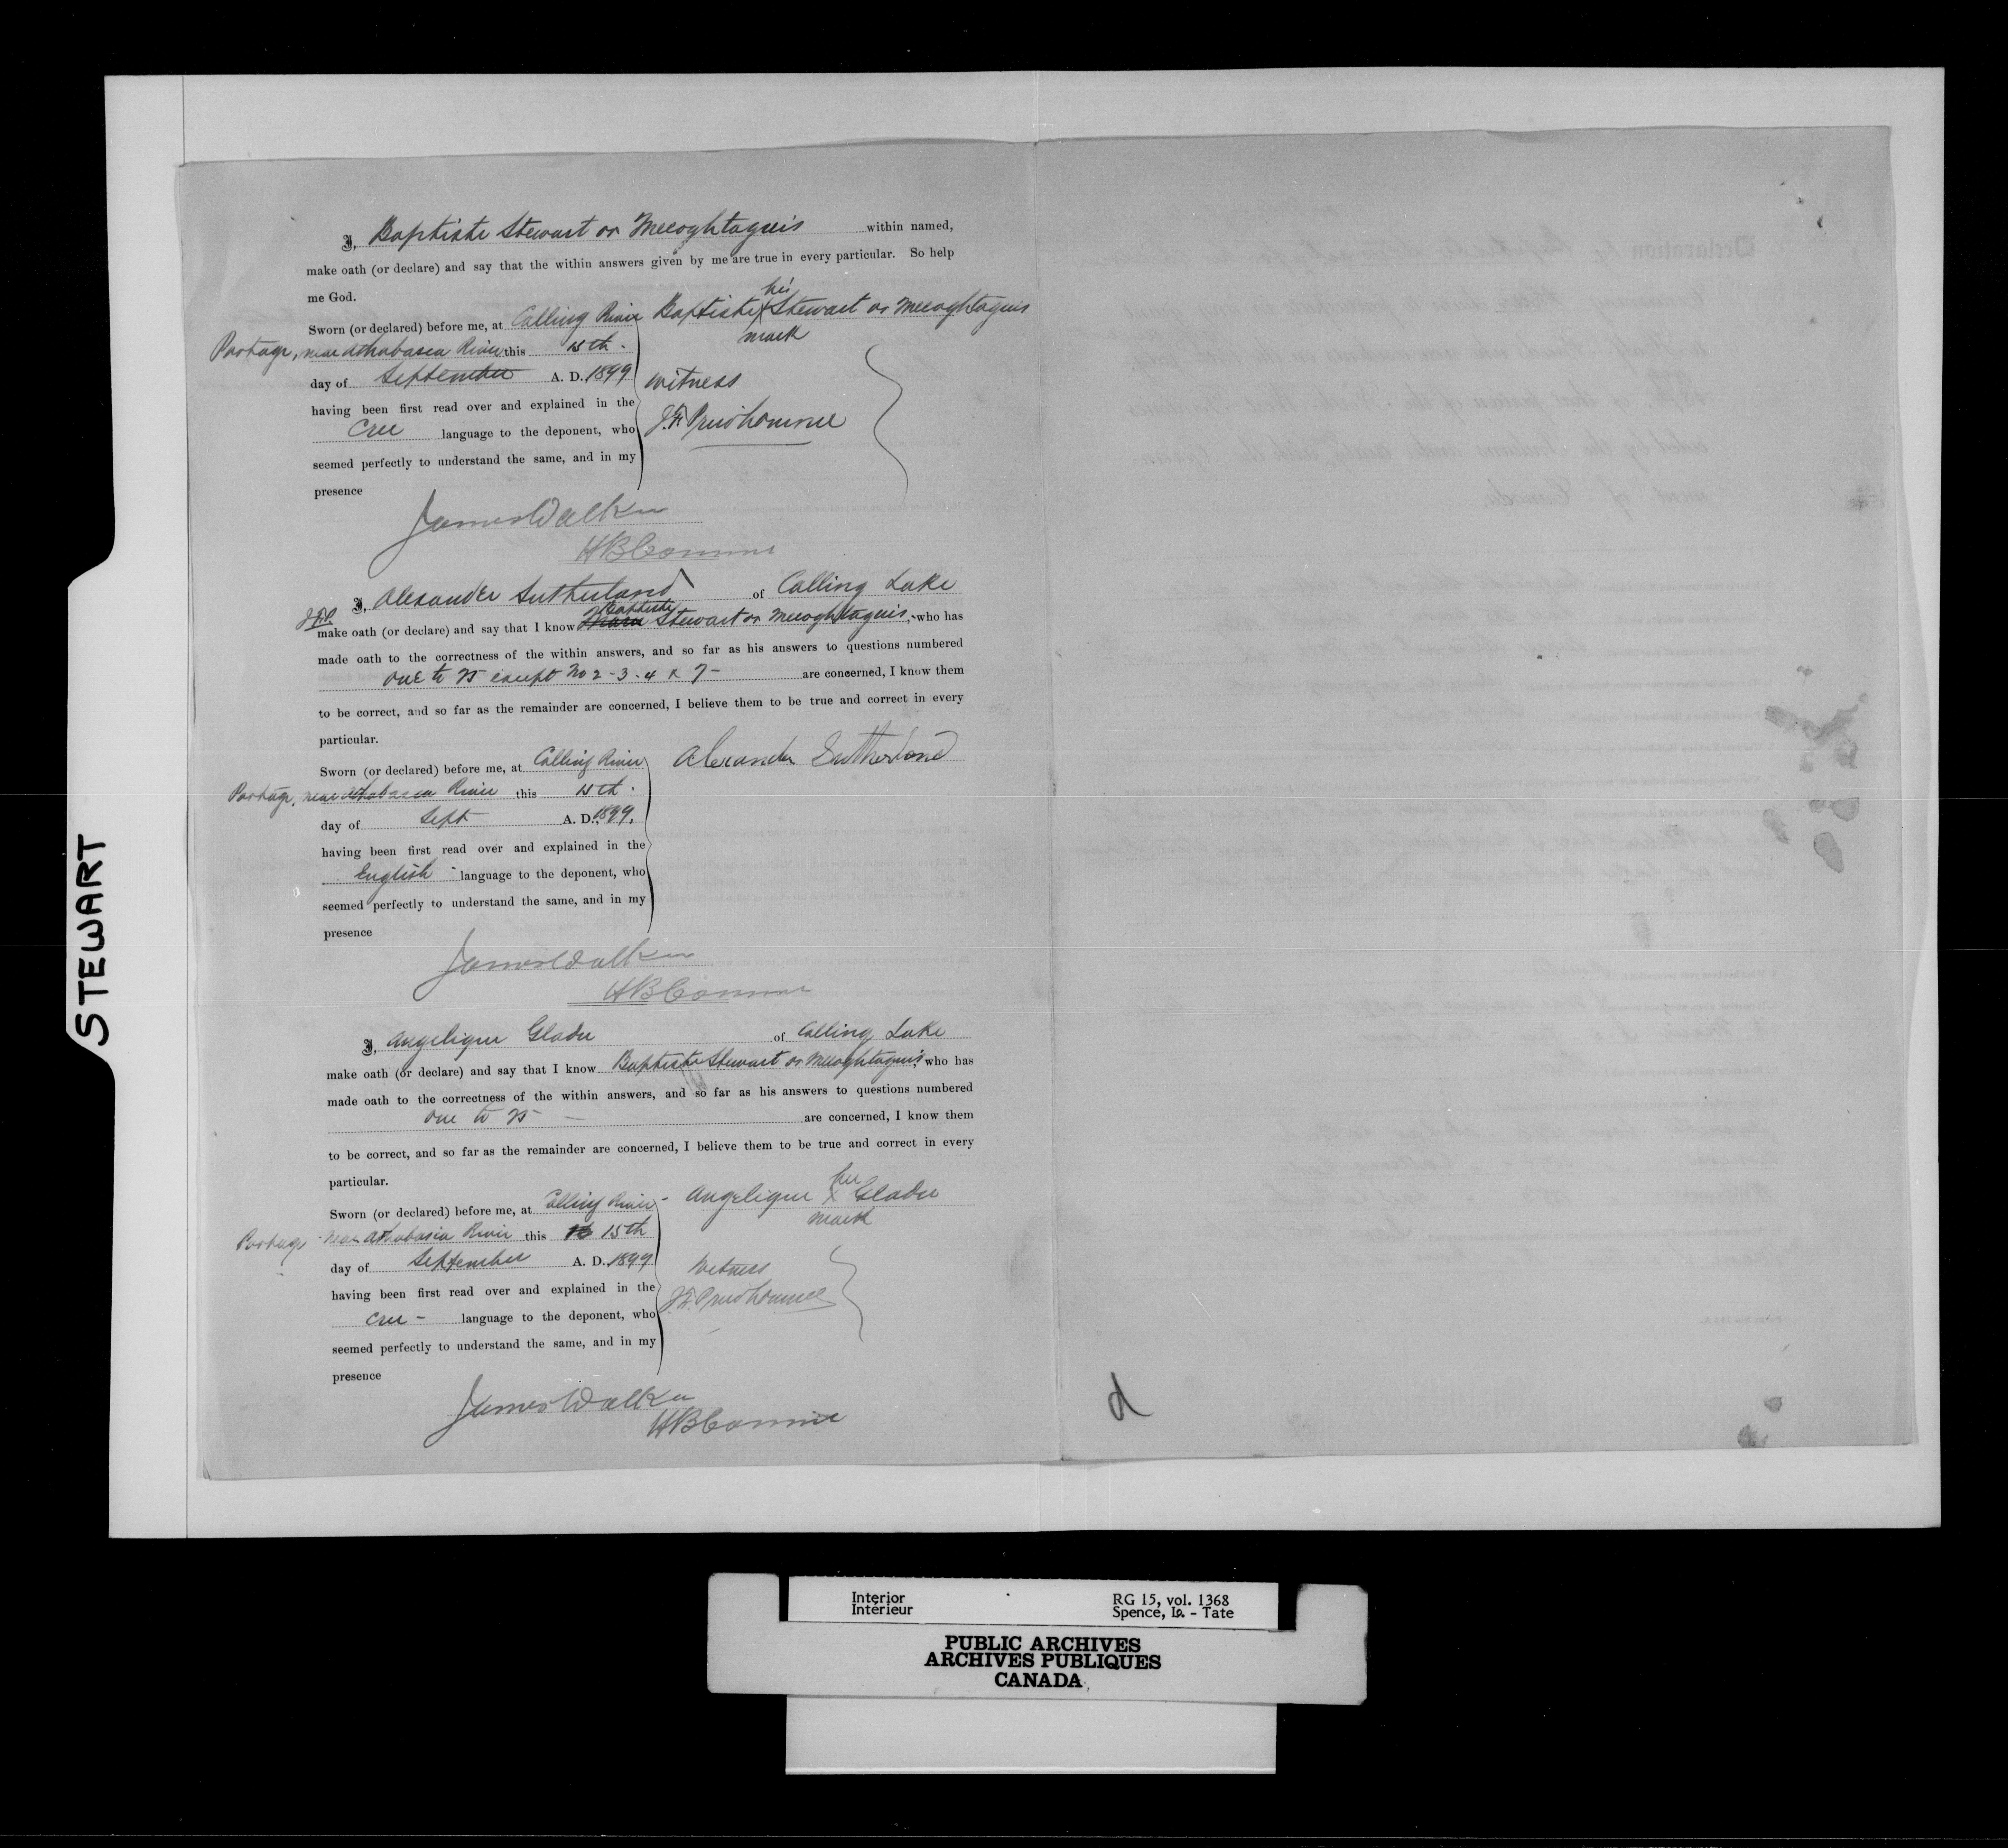 STEWART
I, Baptiste Stewart or Mecoghtaguis within named,
make oath (or declare) and say that the within answers given by me are true in every particular. So help
me God.
Sworn (or declared) before me, at Calling River
Portage, near Athabasca River this 15th.
day of September A. D. 1899
having been first read over and explained in the
Cree language to the deponent, who
seemed perfectly to understand the same, and in my
presence
Baptiste his X mark Stewart or Mecoghtaguis
witness
J.F. Prudhomme
James Walker
I, Alexander Sutherland of Calling Lake
make oath (or declare) and say that I know Baptiste Stewart or Mecoghtaguis, who has
made oath to the correctness of the within answers, and so far as his answers to questions numbered
one to 15 except No 2-3-4 & 7- are concerned, I know them
to be correct, and so far as the remainder are concerned, I believe them to be true and correct in every
particular.
Sworn (or declared) before me, at Calling River
Portage, near Athabasca River this 15th.
day of Sept A. D. 1899.
having been first read over and explained in the
English language to the deponent, who
seemed perfectly to understand the same, and in my
presence
Alexander Sutherland
James Walker
I, Angelique Gladu of Calling Lake
make oath (or declare) and say that I know Baptiste Stewart or Mecoghtaguis, who has
made oath to the correctness of the within answers, and so far as his answers to questions numbered
one to 15 - are concerned, I know them
to be correct, and so far as the remainder are concerned, I believe them to be true and correct in every
particular.
Sworn (or declared) before me, at Calling River
Portage near Athabasca River this 15th
day of September A. D. 1899
having been first read over and explained in the
Cree - language to the deponent, who
seemed perfectly to understand the same, and in my
presence
Angelique her X mark Gladu
Witness
J.F. Prudhomme
James Walker
d
Interior
Intérieur
RG 15, vol. 1368
Spence, Is. - Tate
PUBLIC ARCHIVES
ARCHIVES PUBLIQUES
CANADA